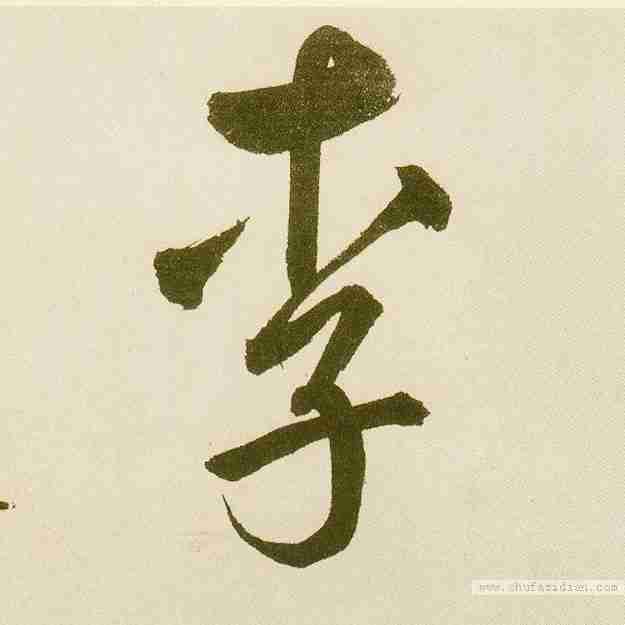 李
www.shufazidian.com